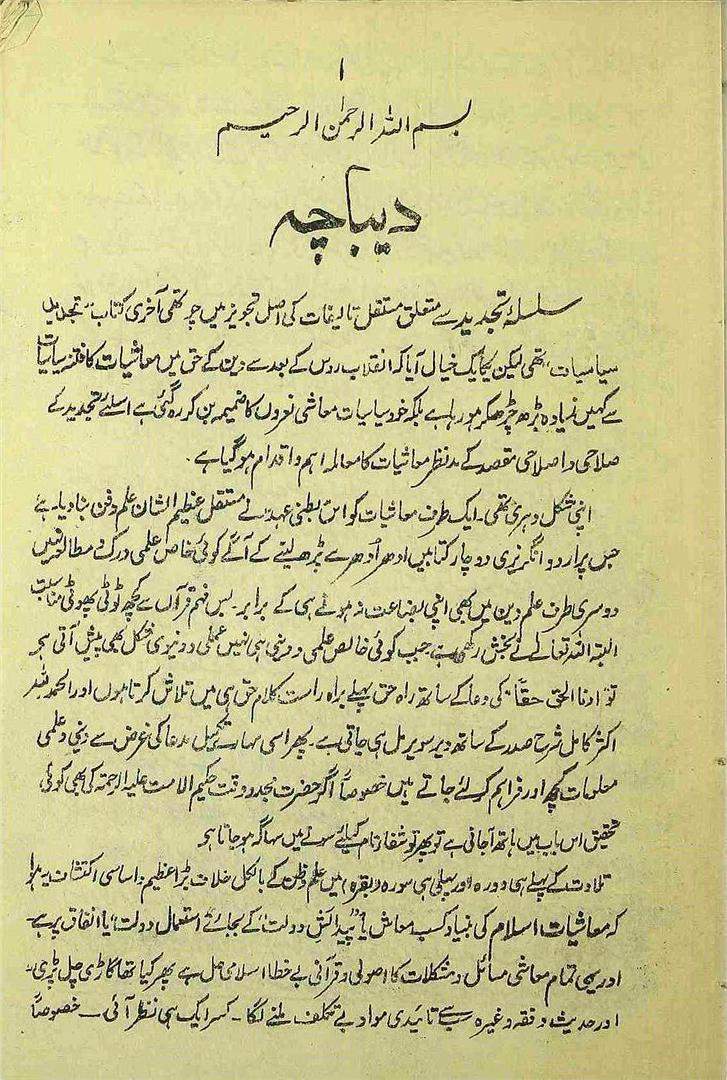 ۱
بسم اللہ الرحمٰن الرحیم
دیباچہ
سلسلۂ تجدید سے متعلق مستقل تالیفات کی اصل تجویز میں چوتھی آخری کتاب "تجدید
سیاسیات" تھی لیکن یکایک خیال آیا کہ انقلاب روس کے بعد سے دین کے حق میں معاشیات کا فتنہ سیاسیات
سے کہیں زیادہ بڑھ چڑھکر ہو رہا ہے بلکہ خود سیاسیات معاشی نعروں کا ضمیمہ بن کر رہ گئی ہے اسلئے تجدید کے
صلاحی و اصلاحی مقصد کے مدنظر معاشیات کا معاملہ اہم و اقدام ہو گیا ہے۔
اپنی شکل دہری تھی۔ ایک طرف معاشیات کو اس بطنی عہد نے مستقل عظیم الشان علم و فن بنا دیا۔ ہے
جس پر اردو انگریزی دو چار کتابیں ادھر اُدھر سے پڑھ لینے کے آگے کوئی خاص علمی ورک نے مطالعہ نہیں
دوسری طرف علم دین میں بھی اپنی بضاعت نہ ہونے ہی کے برابر۔ بس فہم قرآن سے کچھ ٹوٹی پھوٹی مناسبت
البتہ اللہ تعالےٰ نے بخش رکھی ہے جب کوئی خالص علمی و دینی ہی نہیں عملی و دنیوی شکل بھی پیش آتی ہے
تو ارنا الحق حقاً" کی دعا کے ساتھ راہ حق پہلے براہ راست کلام حق ہی میں تلاش کرتا ہوں اور الحمد للہ
اکثر کامل شرح صدر کے ساتھ دیر سویر مل ہی جاتی ہے۔ پھر اسی سہارے تکمیل مدعا کی غرض سے دینی و علمی
معلومات کچھ اور فراہم کر لئے جاتے ہیں خصوصاً اگر حضرت مجدد وقت حکیم الامت علیہ الرحمتہ کی بھی کوئی
تحقیق اس باب میں ہاتھ آجاتی ہے تو پھر تو شفاء تام کیلئے سونے میں سہاگہ ہو جاتا ہو
تلاوت کے پہلے ہی دورہ اور پہلی ہی سورہ (بقرہ) میں علم و ظن کے بالکل خلاف بڑا عظیم و اساسی اکتشاف یہ ہوا
کہ معاشیات اسلام کی بنیاد کسب معاش یا "پیدائش دولت" کے بجائے استعمال دولت" یا انفاق پر ہے۔
اور یہی تمام معاشی مسائل و مشکلات کا اصولی و قرآنی بے خطا اسلامی حل ہے پھر کیا تھا گاڑی چل پڑی۔
اور حدیث و فقہ وغیرہ سب سے تائیدی مواد بے تکلف ملنے لگا۔ کسر ایک ہی نظر آئی۔ خصوصاً